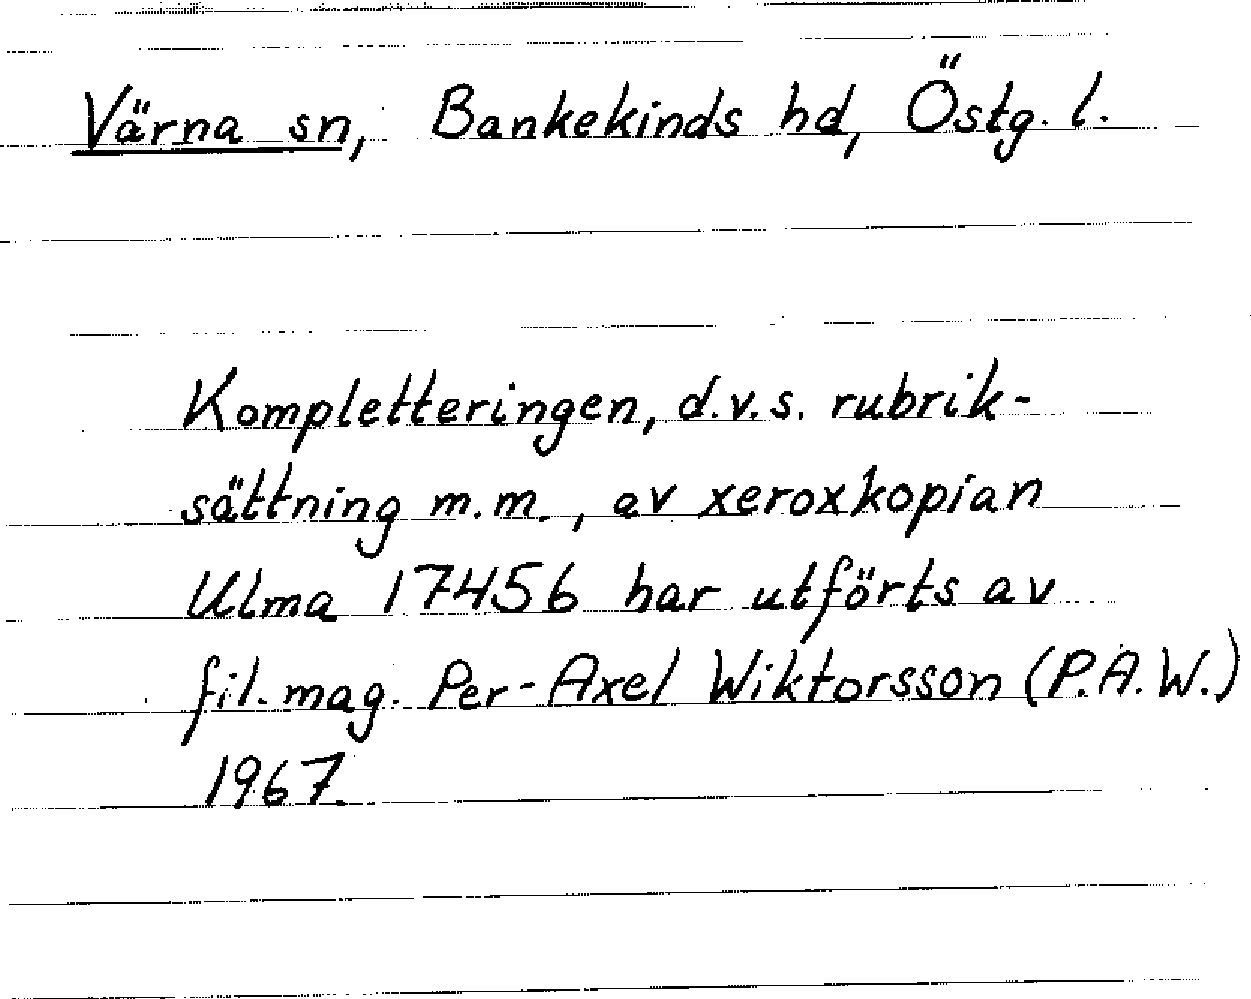 Värna sn, Bankekinds hd, Östg. l.
Kompletteringen, d.v.s. rubrik-
sättning m.m., av xeroxkopian
Ulma 17456 har utförts av
fil. mag. Per-Axel Wiktorsson (P.A.W.)
1967.